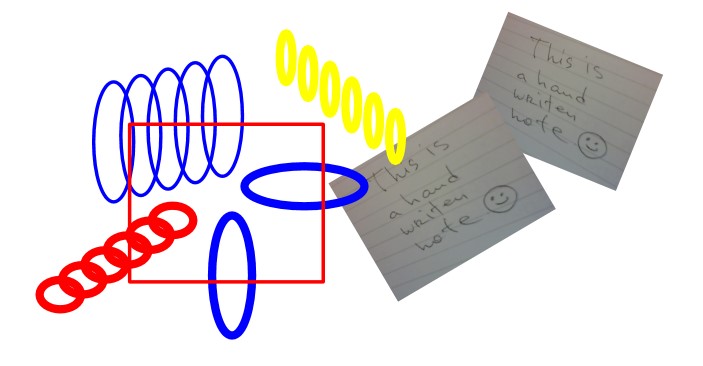 This is
a hand
writen
note ☺
This is
a hand
writen
note ☺